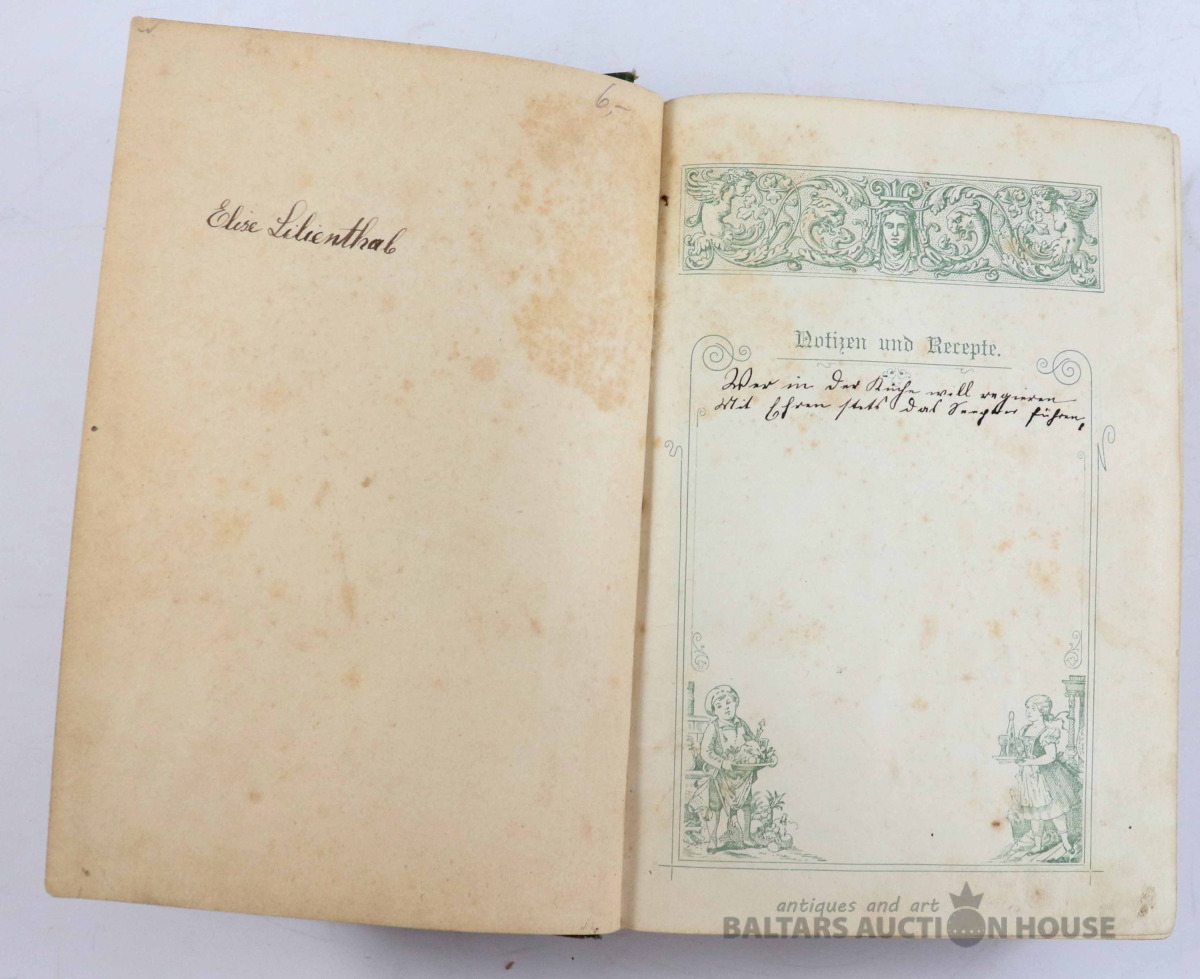 6,-
Elise Lilienthal
Notizen und Recepte.
Wer in der Küche will regieren
Mit Ehren stets das Scepter führen,
antiques and art
BALTARS AUCTION HOUSE